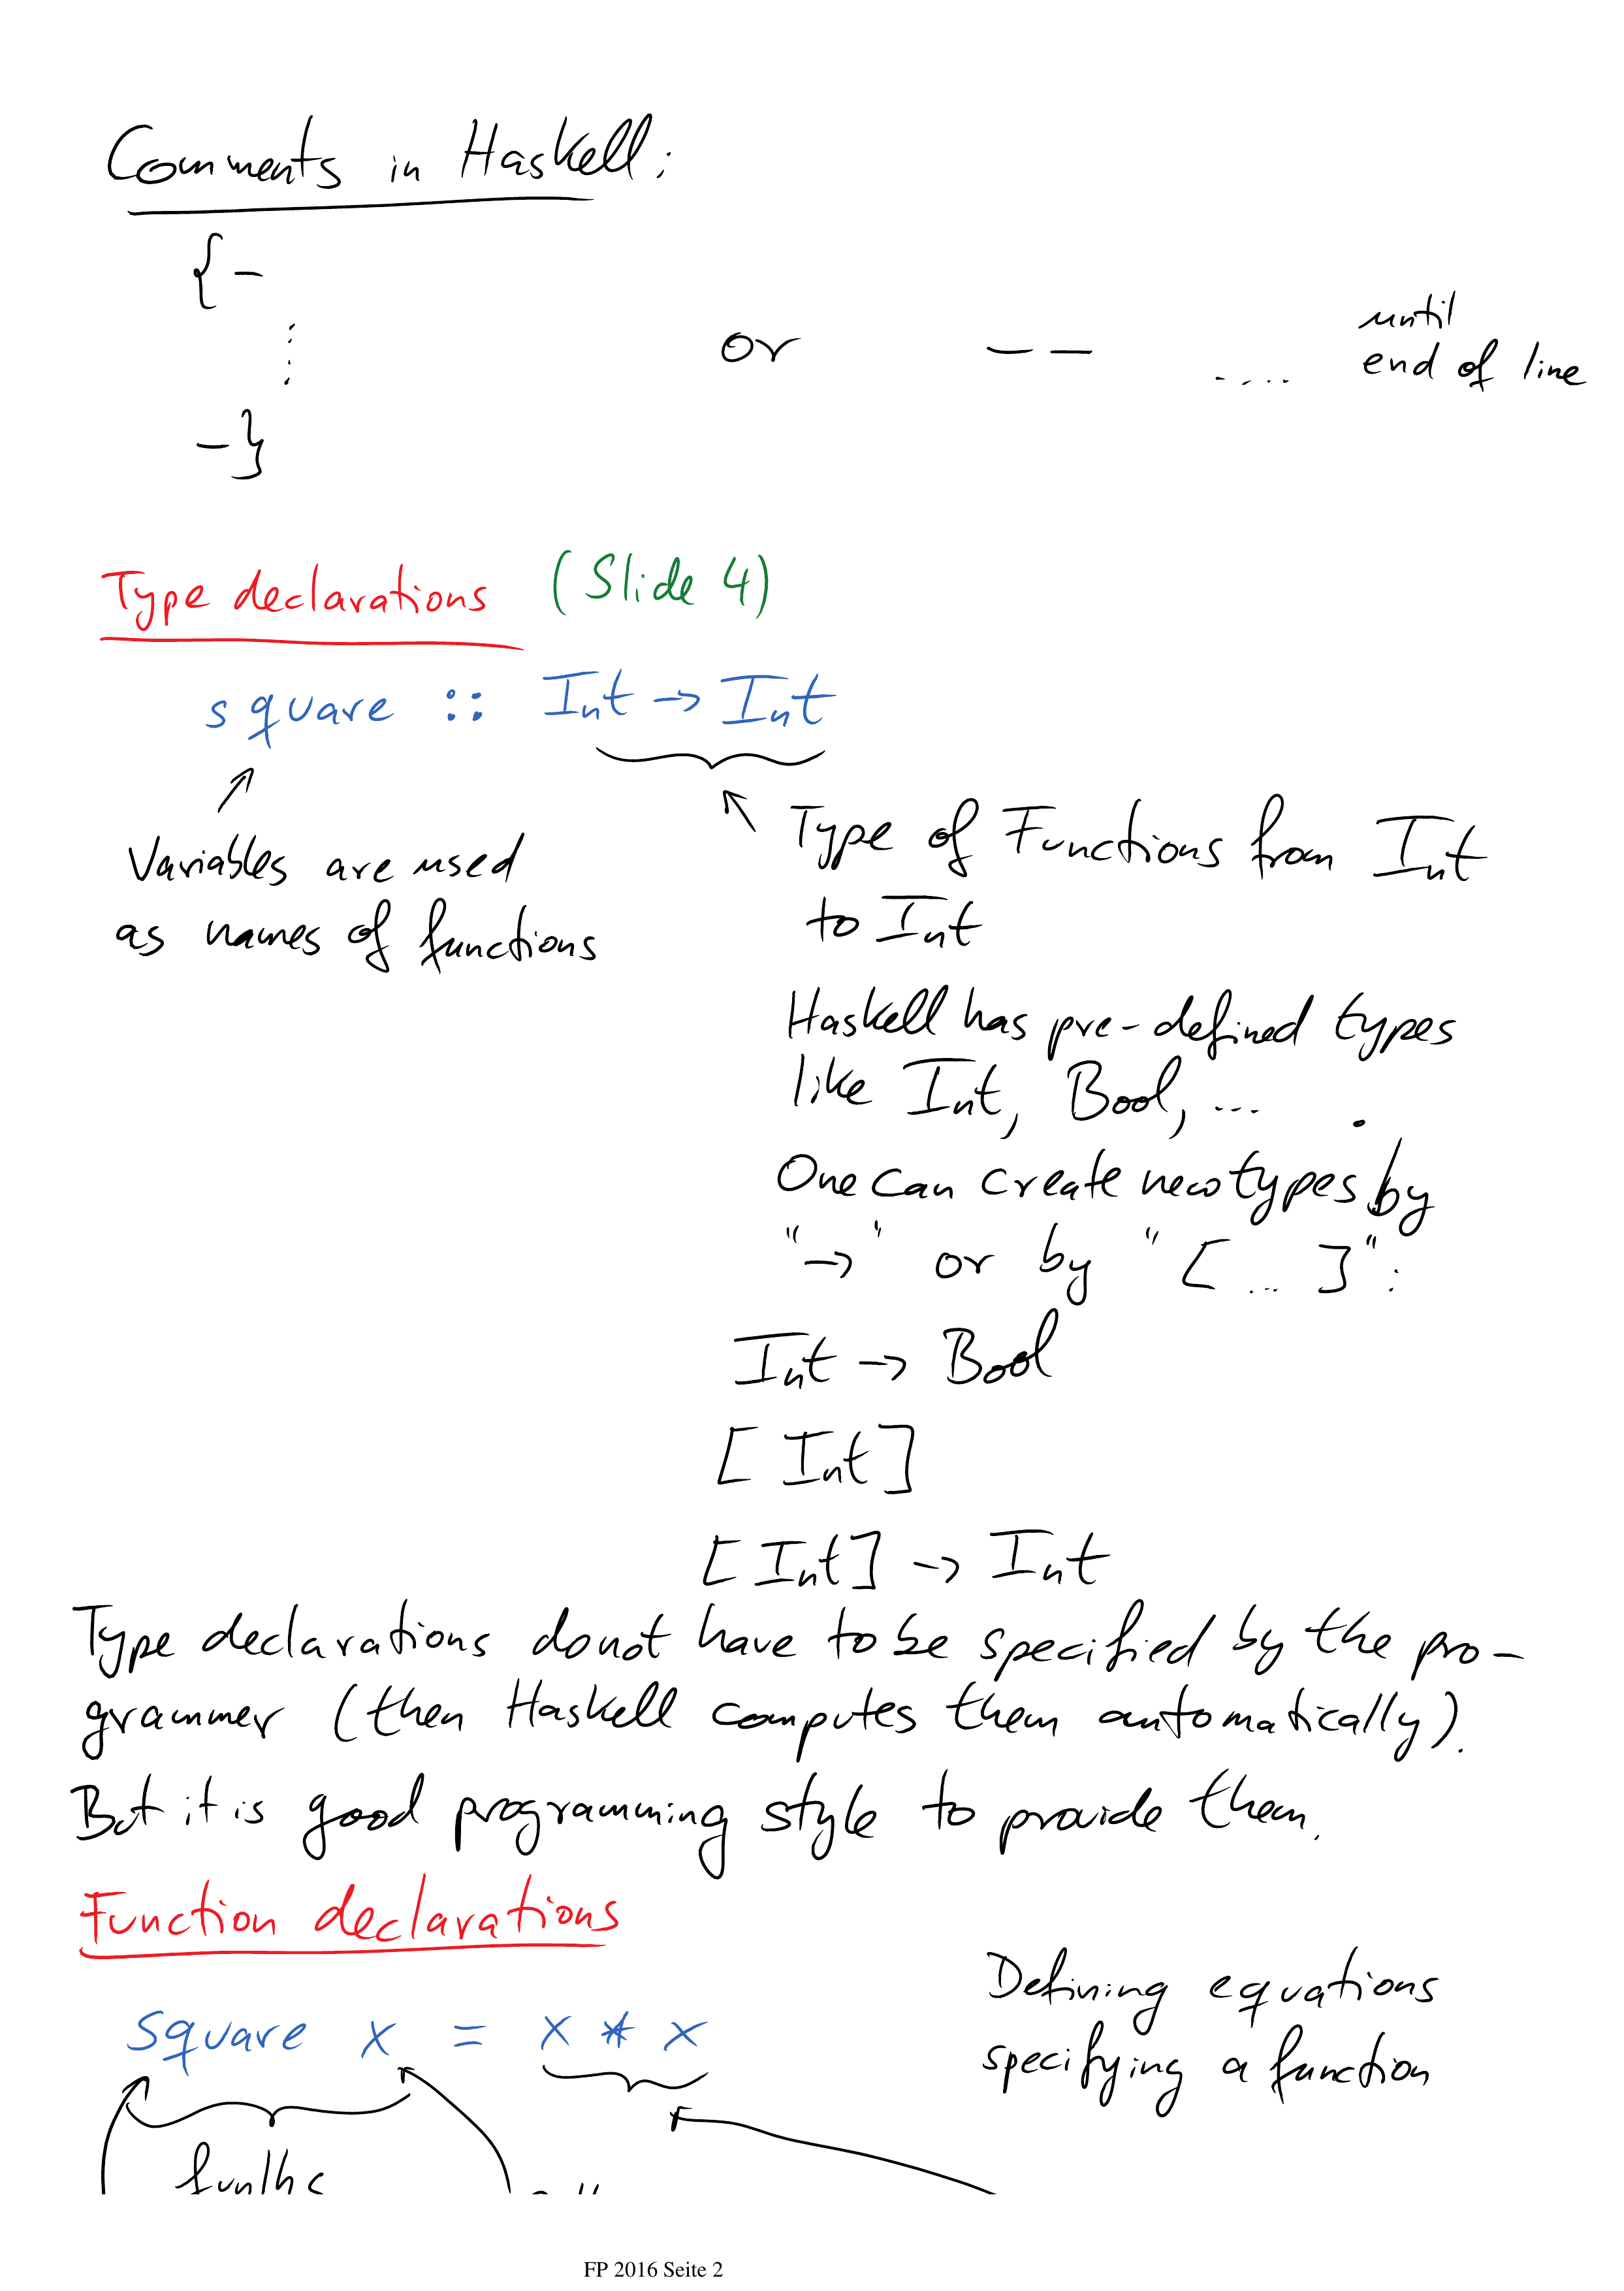 Comments in Haskell:
{-
⋮
-}
or
-- .... until
end of line
Type declarations (Slide 4)
square :: Int -> Int
Variables are used
as names of functions
Type of Functions from Int
to Int
Haskell has pre-defined types
like Int, Bool, ... .
One can create new types by
"->" or by "[ ... ]":
Int -> Bool
[Int]
[Int] -> Int
Type declarations do not have to be specified by the pro-
grammer (then Haskell computes them automatically).
But it is good programming style to provide them.
Function declarations
square x = x * x
Defining equations
specifying a function
funlhs
FP 2016 Seite 2